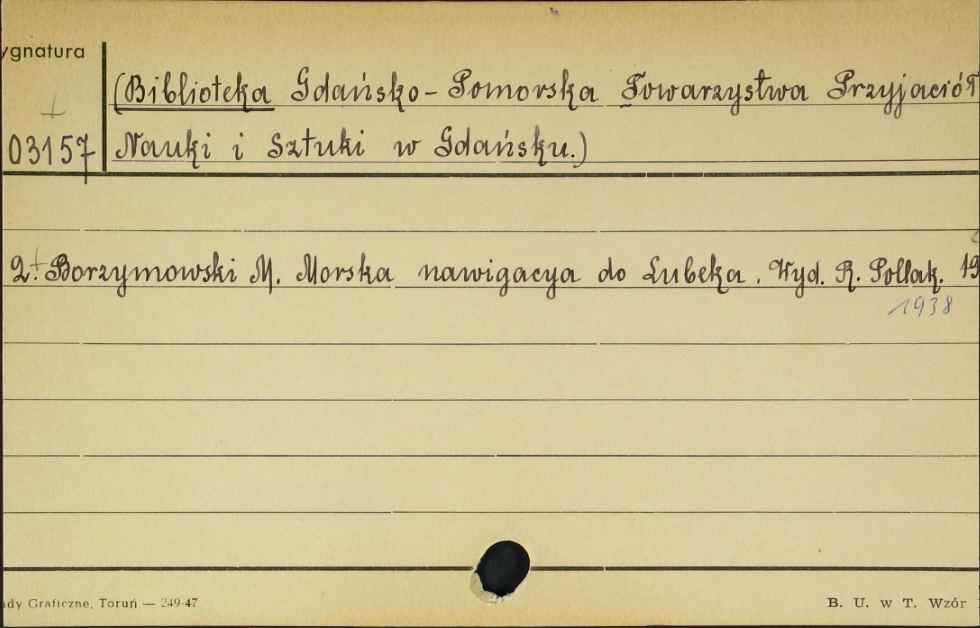 ygnatura
(Biblioteka Gdańsko-Pomorska Towarzystwa Przyjaciół
03157 Nauki i Sztuki w Gdańsku.)
2. Borzymowski M. Morska nawigacya do Lubeka. Wyd. R. Pollak. 19
1938
ady Graficzne, Toruń — 249-47
B. U. w T. Wzór